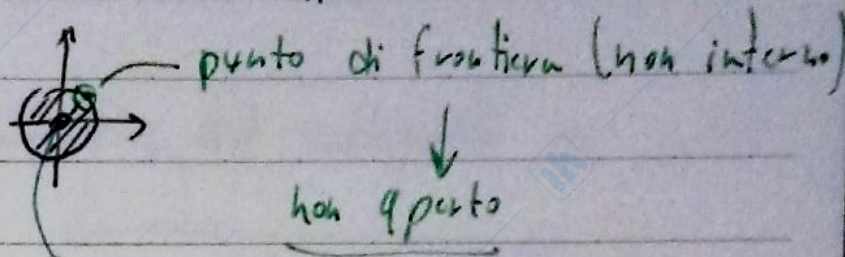 punto di frontiera (non interno)
non aperto